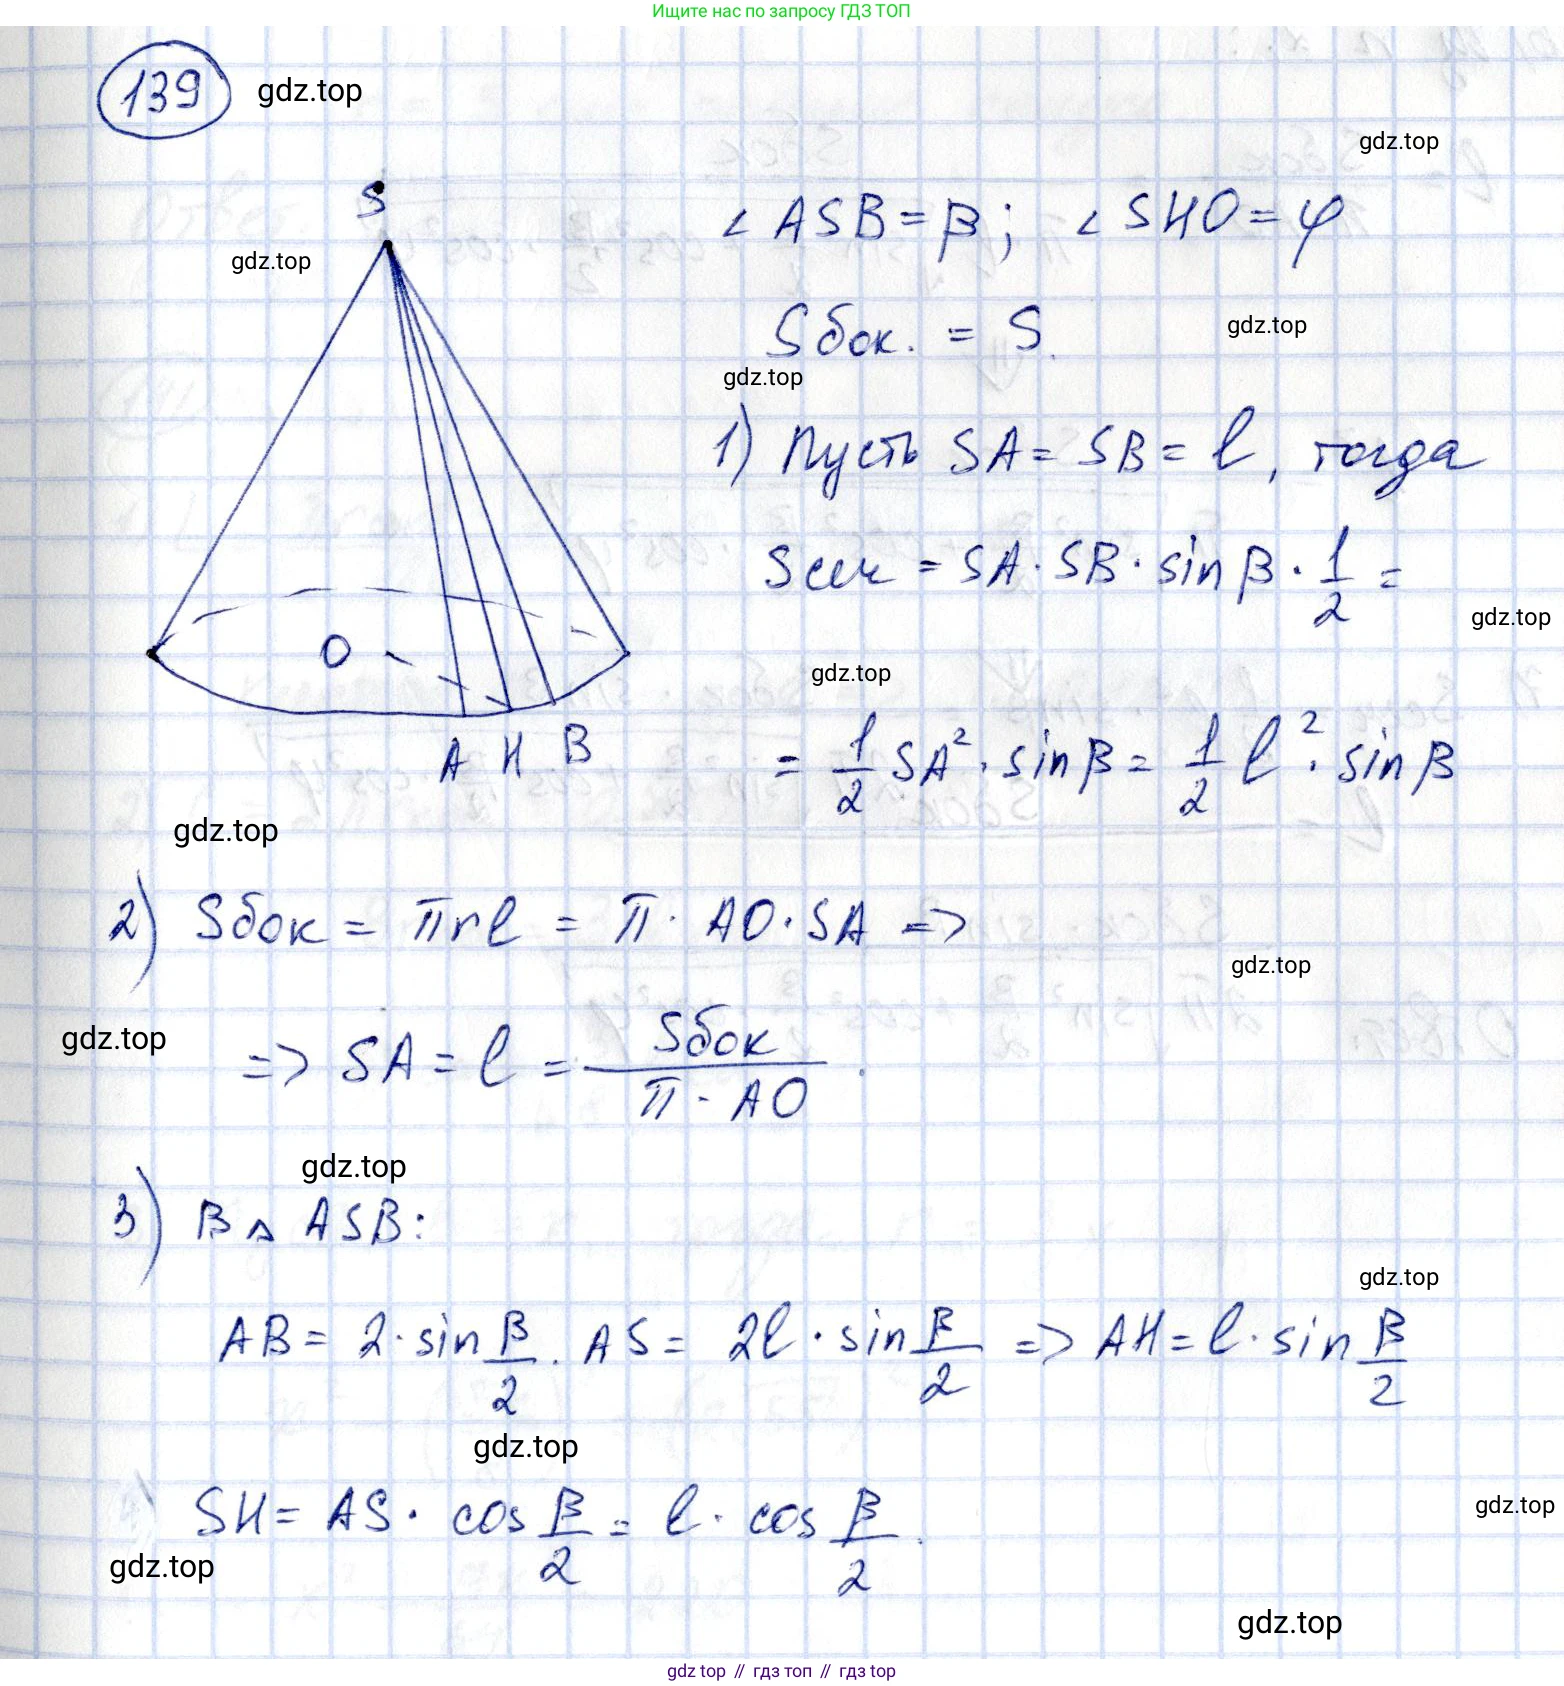 Ищите нас по запросу ГДЗ ТОП
139
gdz.top
gdz.top
S
∠ ASB = β; ∠ SHO = φ
gdz.top
Sбок. = S.
gdz.top
gdz.top
1) Пусть SA = SB = l, тогда
Sсеч = SA · SB · sin β · 1/2 =
gdz.top
O
gdz.top
A H B
= 1/2 SA² · sin β = 1/2 l² · sin β
gdz.top
2) Sбок = πrl = π · AO · SA =>
gdz.top
gdz.top
=> SA = l = Sбок / π · AO.
gdz.top
3) В △ ASB:
gdz.top
AB = 2 · sin β/2 · AS = 2l · sin β/2 => AH = l · sin β/2
gdz.top
gdz.top
SH = AS · cos β/2 = l · cos β/2.
gdz.top
gdz.top
gdz top // гдз топ // гдз top